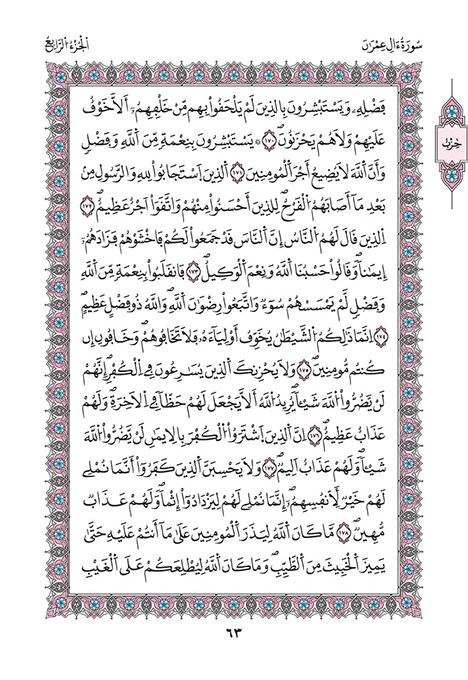 سُورَةُ ءَالِ عِمْرَٰنَ
اَلْجُزْءُ اَلرَّابِعُ
فَضْلِهِۦ وَيَسْتَبْشِرُونَ بِالذِينَ لَمْ يَلْحَقُواْ بِهِم مِّنْ خَلْفِهِمُۥٓ أَلَّا خَوْفٌ
عَلَيْهِمْ وَلَا هُمْ يَحْزَنُونَ ١٧٠ يَسْتَبْشِرُونَ بِنِعْمَةٖ مِّنَ اَللَّهِ وَفَضْلٖ
وَأَنَّ اَللَّهَ لَا يُضِيعُ أَجْرَ اَلْمُومِنِينَ ١٧١ اَلذِينَ اَسْتَجَابُواْ لِلهِ وَالرَّسُولِ مِنۢ
بَعْدِ مَآ أَصَابَهُمُ اُلْقَرْحُ لِلذِينَ أَحْسَنُواْ مِنْهُمْ وَاتَّقَوَاْ اَجْرٌ عَظِيمٌ ١٧٢
اَلذِينَ قَالَ لَهُمُ اُلنَّاسُ إِنَّ اَلنَّاسَ قَدْ جَمَعُواْ لَكُمْ فَاخْشَوْهُمْ فَزَادَهُمُۥٓ
إِيمَٰناٗ وَقَالُواْ حَسْبُنَا اَللَّهُ وَنِعْمَ اَلْوَكِيلُ ١٧٣ فَانقَلَبُواْ بِنِعْمَةٖ مِّنَ اَللَّهِ
وَفَضْلٖ لَّمْ يَمْسَسْهُمْ سُوٓءٞ وَاتَّبَعُواْ رِضْوَٰنَ اَللَّهِ وَاللَّهُ ذُو فَضْلٍ عَظِيمٍ
١٧٤ اِنَّمَا ذَٰلِكُمُ اُلشَّيْطَٰنُ يُخَوِّفُ أَوْلِيَآءَهُۥ فَلَا تَخَافُوهُمْ وَخَافُونِ إِن
كُنتُم مُّومِنِينَ ١٧٥ وَلَا يُحْزِنكَ اَلذِينَ يُسَٰرِعُونَ فِے اِلْكُفْرِ إِنَّهُمْ
لَنْ يَّضُرُّواْ اُللَّهَ شَيْـٔاٗ يُرِيدُ اُللَّهُ أَلَّا يَجْعَلَ لَهُمْ حَظّاٗ فِے اِلَاخِرَةِ وَلَهُمْ
عَذَابٌ عَظِيمٌ ١٧٦ اِنَّ اَلذِينَ اَشْتَرَوُاْ اُلْكُفْرَ بِالِايمَٰنِ لَنْ يَّضُرُّواْ اُللَّهَ
شَيْـٔاٗ وَلَهُمْ عَذَابٌ اَلِيمٌ ١٧٧ وَلَا يَحْسِبَنَّ اَلذِينَ كَفَرُوٓاْ أَنَّمَا نُمْلِے
لَهُمْ خَيْرٞ لِّأَنفُسِهِمُۥٓ إِنَّمَا نُمْلِے لَهُمْ لِيَزْدَادُوٓاْ إِثْماٗ وَلَهُمْ عَذَابٞ
مُّهِينٞ ١٧٨ مَّا كَانَ اَللَّهُ لِيَذَرَ اَلْمُومِنِينَ عَلَىٰ مَآ أَنتُمْ عَلَيْهِ حَتَّىٰ
يَمِيزَ اَلْخَبِيثَ مِنَ اَلطَّيِّبِ وَمَا كَانَ اَللَّهُ لِيُطْلِعَكُمْ عَلَى اَلْغَيْبِ
حِزْبٌ
٦٣